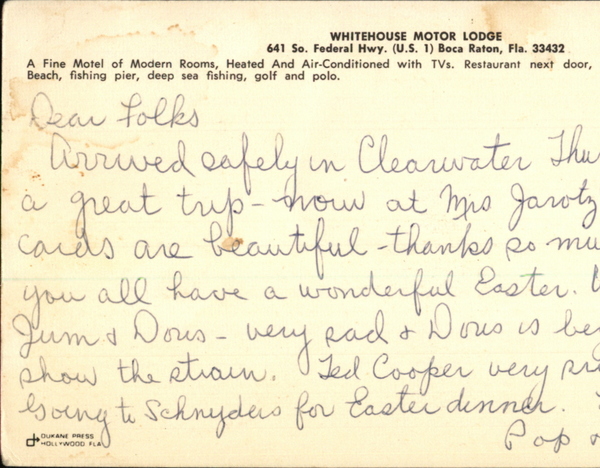 WHITEHOUSE MOTOR LODGE
641 So. Federal Hwy. (U.S. 1) Boca Raton, Fla. 33432
A Fine Motel of Modern Rooms, Heated And Air-Conditioned with TVs. Restaurant next door,
Beach, fishing pier, deep sea fishing, golf and polo.
Dear Folks
Arrived safely in Clearwater Thu
a great trip - now at Mrs Jarotz
cards are beautiful - thanks so mu
you all have a wonderful Easter.
Jim & Doris - very sad & Doris is be
show the strain. Ted Cooper very
Going to Schnyders for Easter dinner.
Pop
DUKANE PRESS
HOLLYWOOD FLA